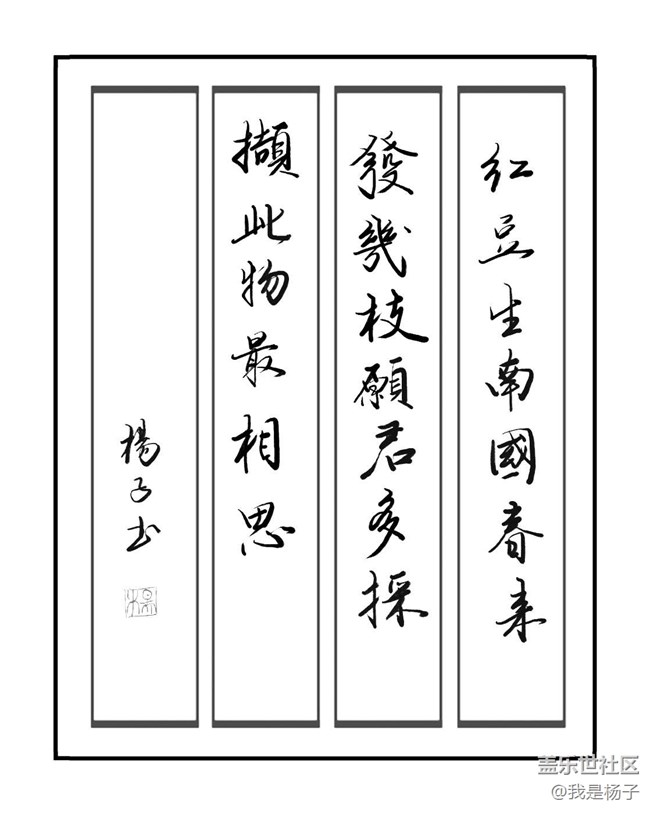 红豆生南國春来
發幾枝願君多採
擷此物最相思
楊子书
楊
盖乐世社区
@我是杨子